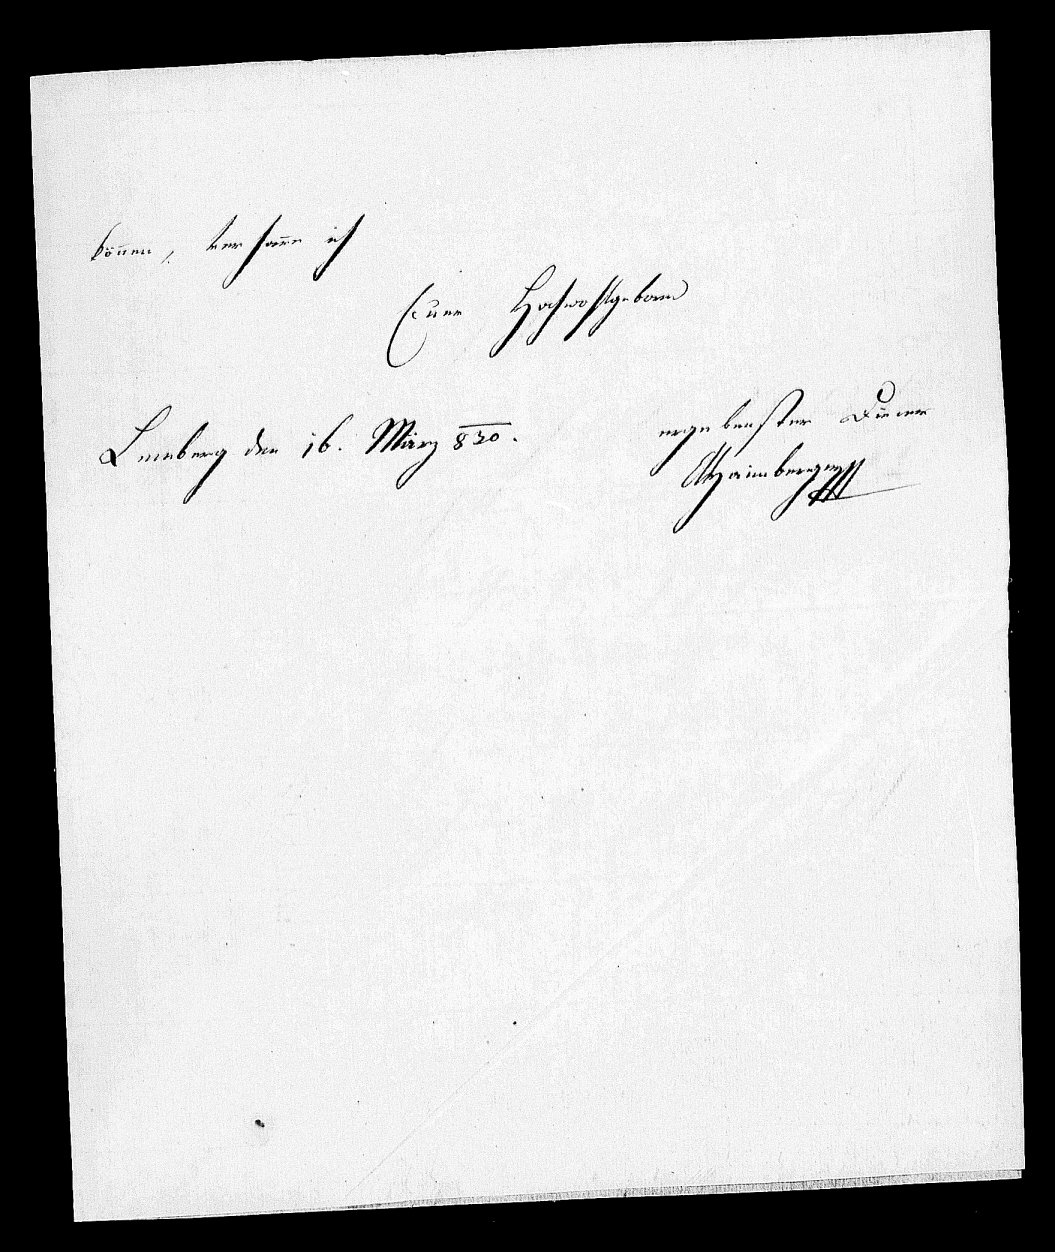 können, verharre ich
Euer Hochwohlgeborn
Lemberg den 16. März 820.
ergebenster Diener